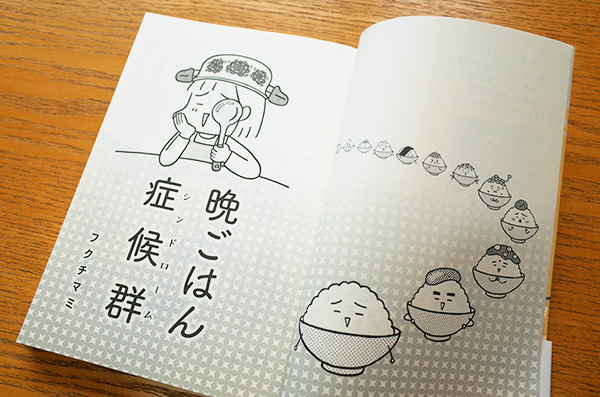 晩ごはん
症候群
シンドローム
フクチマミ